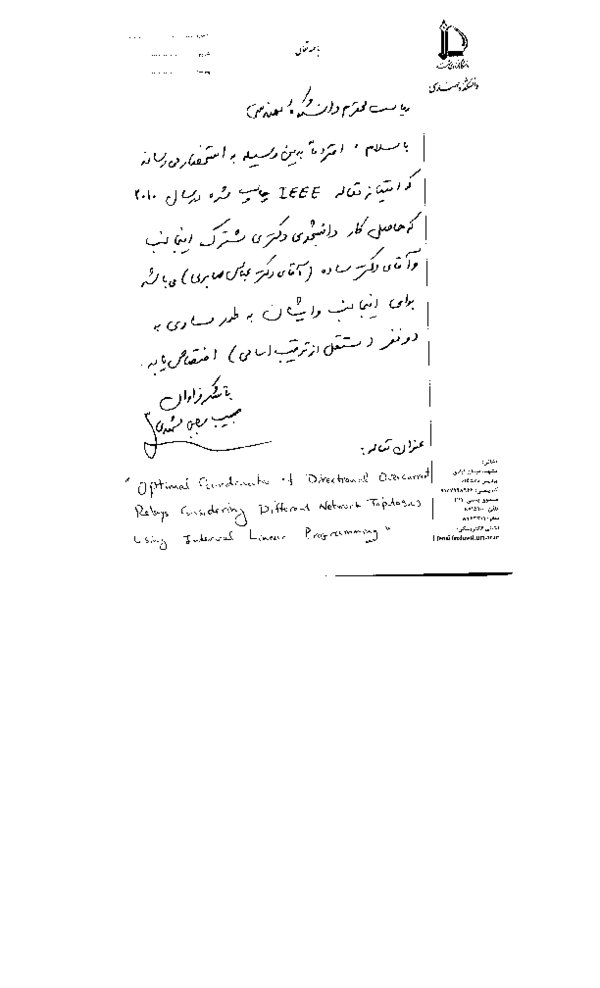 باسمه تعالی
دانشکده مهندسی
ریاست محترم دانشکده مهندسی
با سلام، احتراماً بدین وسیله به استحضار می رساند
که امتیاز مقاله IEEE چاپ شده در سال ۲۰۱۰
که حاصل کار دانشجوی دکتری مشترک اینجانب
و آقای دکتر ساده (آقای دکتر عباس صابری) می باشد
برای اینجانب و ایشان به طور مساوی به
دو نفر (مستقل از ترتیب اسامی) اختصاص یابد.
با تشکر فراوان
حبیب رجبی مشهدی
عنوان مقاله:
" Optimal Coordination of Directional Overcurrent
Relays Considering Different Network Topologies
Using Interval Linear Programming "
نشانی:
مشهد، میدان آزادی